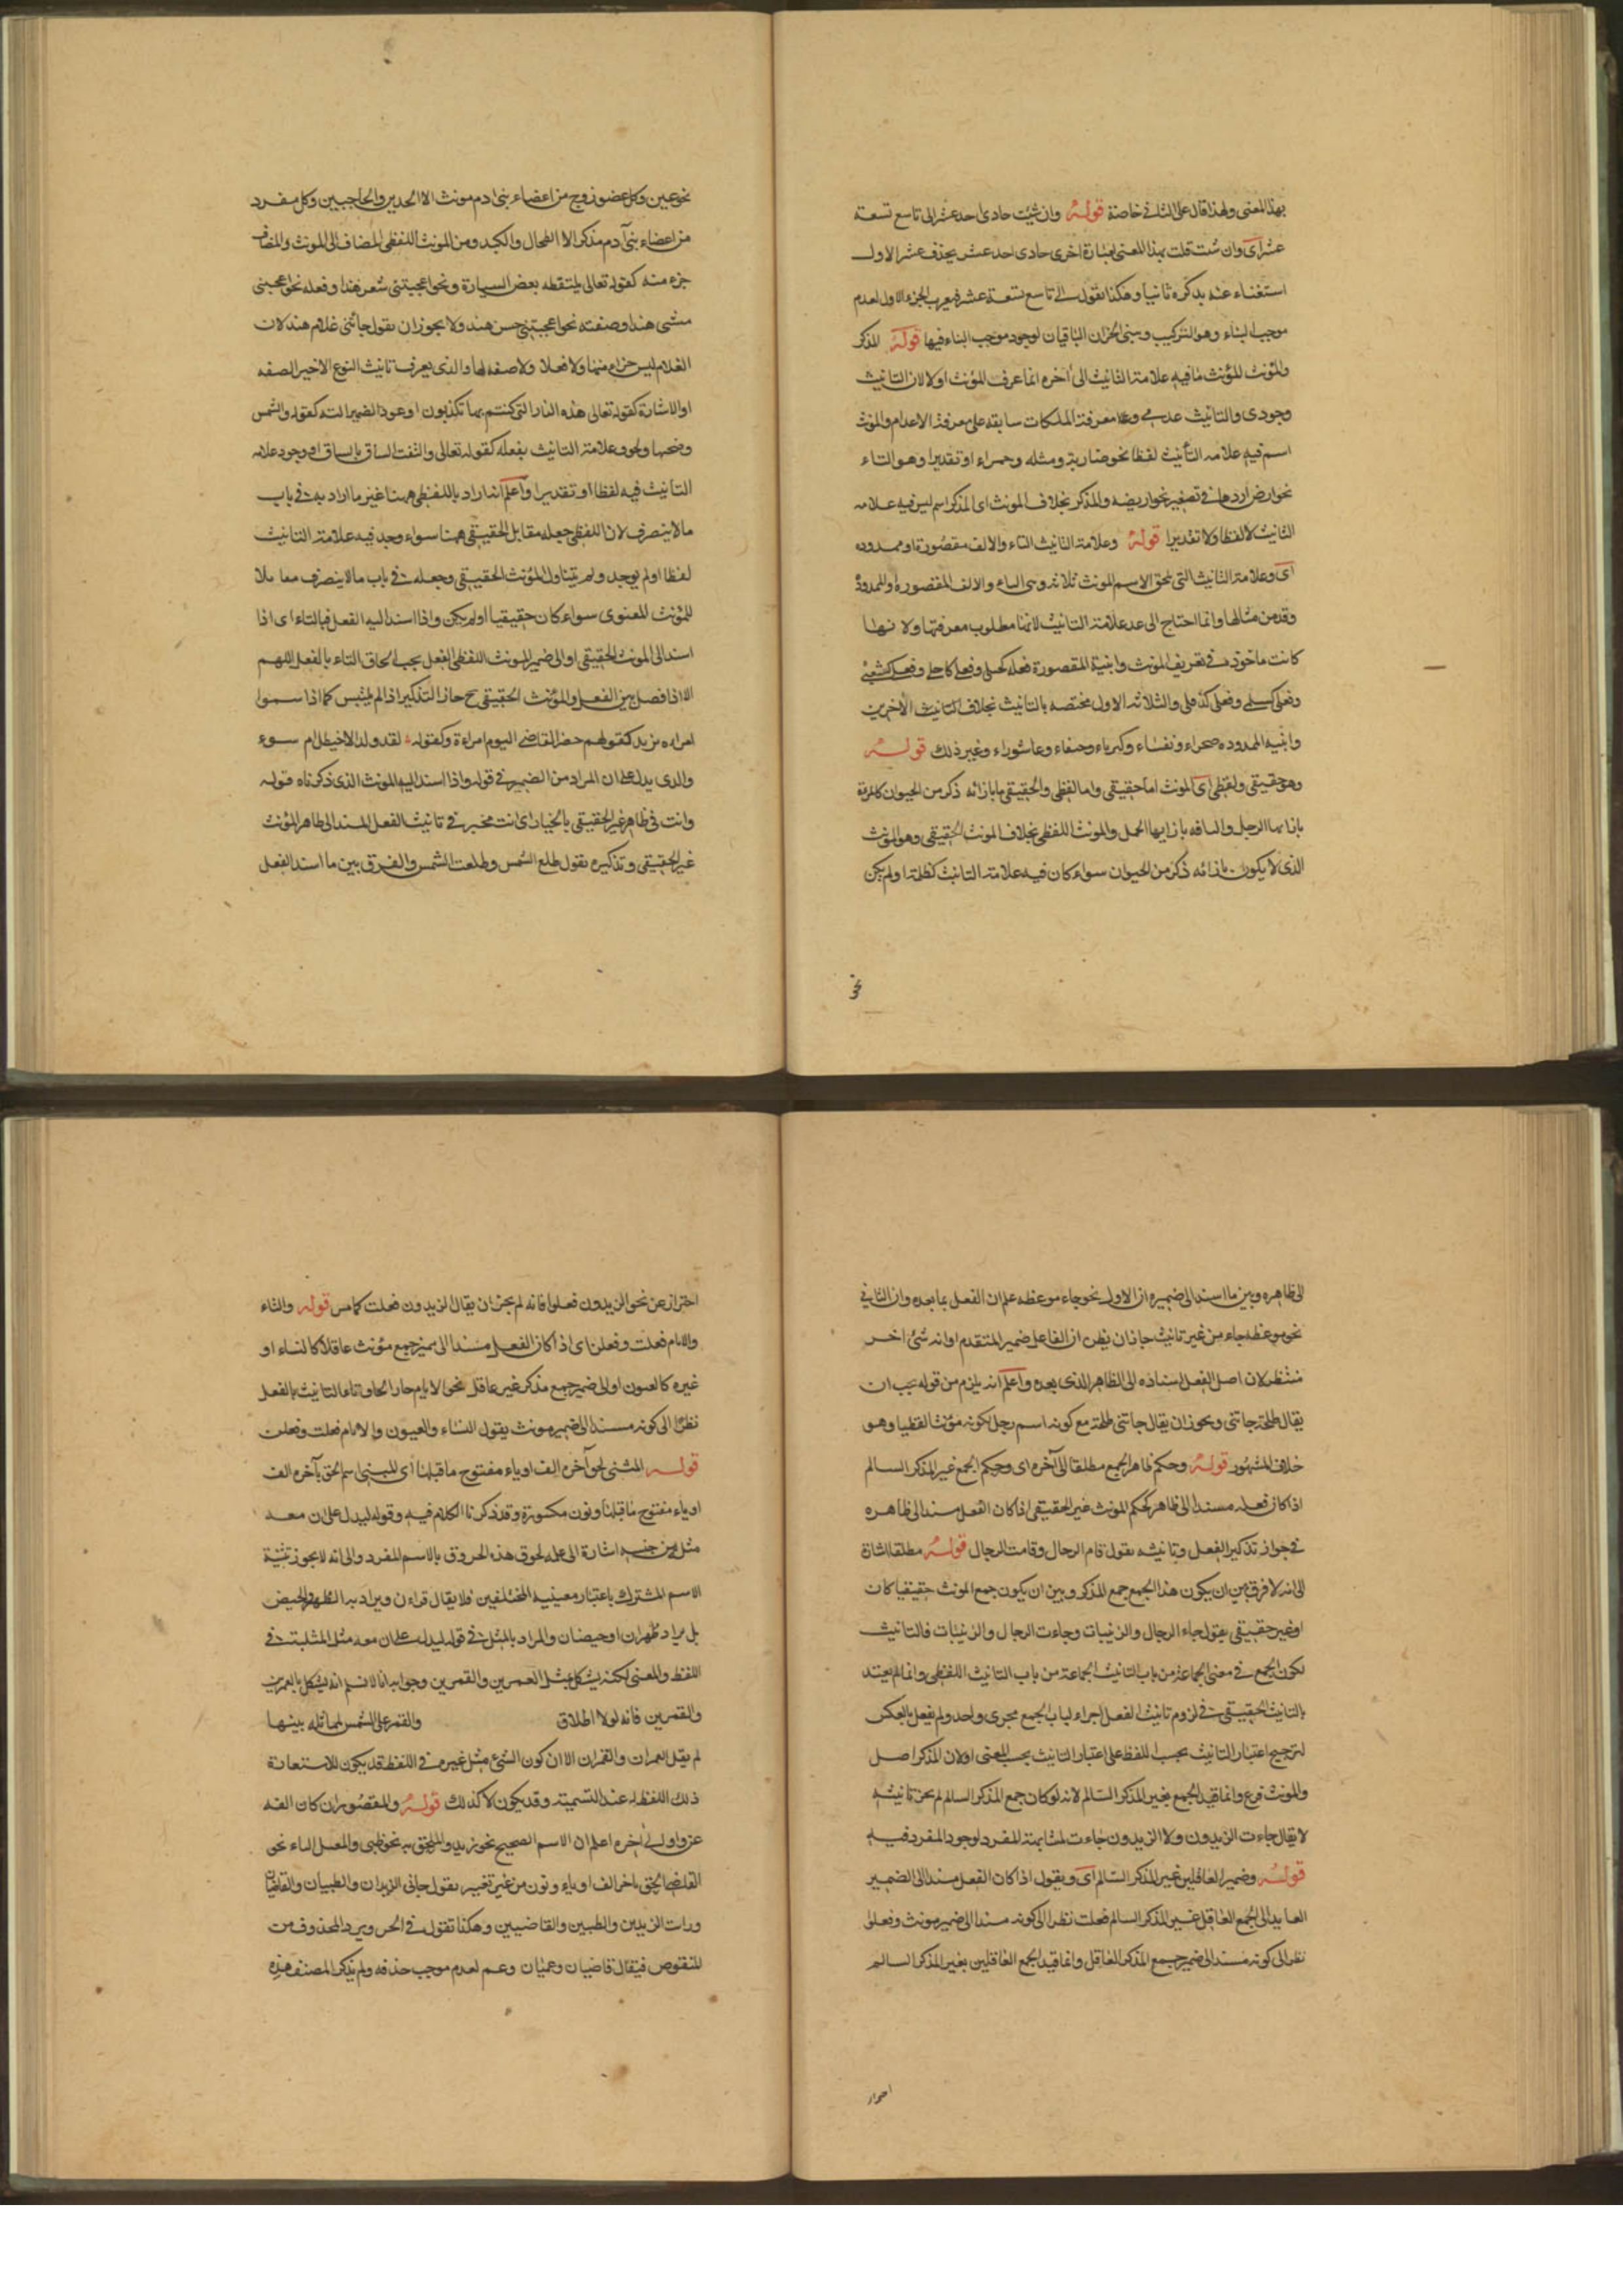 بهذا المعنى ولهذا قال على الثاني خاصة قوله وان شئت حادى احد عشر الى تاسع تسعة
عشر اى وان شئت قلت بهذا المعنى بعبارة اخرى حادى احد عشر بحذف عشر الاول
استغناء عنه بذكره ثانيا وهكذا تقول الى تاسع تسعة عشر فيعرب الجزء الاول لعدم
موجب البناء وهو التركيب وبنى الجزان الباقيان لوجود موجب البناء فيها قوله المذكر
والمؤنث المؤنث ما فيه علامة التانيث الى اخره انما عرف المؤنث اولا لان التانيث
وجودى والتانيث عدمى ومعرفة الملكات سابقة على معرفة الاعدام والمونث
اسم فيه علامه التأنيث لفظا نحو ضاربة ومثله وحمراء او تقديرا وهو التاء
نحو ارض اردها فى تصغير نحو اريضه والمذكر بخلاف المونث اى المذكر اسم ليس فيه علامه
التانيث لا لفظا ولا تقديرا قوله وعلامة التانيث التاء والالف مقصورة او ممدوده
اى وعلامة التانيث التى تلحق الاسم المونث ثلاثة وهى التاء والالف المقصوره والممدودة
وقد من مثالها وانما احتاج الى عد علامة التانيث لانها مطلوب معرفتها ولانها
كانت ماخوذه فى تعريف المونث وابنية المقصورة فعلى كحبلى وفعلى كاجلى وفعلى كشعبى
وفعلى كسلمى وفعلى كذفلى والثلاثة الاول مختصه بالتانيث بخلاف التانيث الاخرين
وابنية الممدوده صحراء ونفساء وكبرياء وخنفاء وعاشوراء وغير ذلك قوله
وهو حقيقى ولفظى اى المونث اما حقيقى واما لفظى والحقيقى ما بازائه ذكر من الحيوان كالمرءة
بازائها الرجل والناقه بازايها الجمل والمونث اللفظى بخلاف المونث الحقيقى وهو المونث
الذى لا يكون بازائه ذكر من الحيوان سواء كان فيه علامة التانيث كظلمة او لم يكن
نحو
نحو عين وكل عضو زوج من اعضاء بنى ادم مونث الا الخدين والحاجبين وكل مفرد
من اعضاء بنى آدم مذكر الا الطحال والكبد ومن المونث اللفظى المضاف الى المونث والمضاف
جزء منه كقوله تعالى يلتقطه بعض السيارة ونحو اعجبتنى شعر هند او فعله نحو اعجبتنى
مشى هند او صفته نحو اعجبتنى حسن هند ولا يجوز ان تقول جائتنى غلام هند لان
الغلام ليس جزاء منها ولا فعلا ولا صفه لها والذى يعرف تانيث النوع الاخير الصفه
او الاشارة كقوله تعالى هذه النار التى كنتم بها تكذبون او عود الضمير اليه كقوله والشمس
وضحيها ولحوق علامة التانيث بفعله كقوله تعالى والتفت الساق بالساق او وجود علامه
التأنيث فيه لفظا او تقديرا واعلم انه اراد باللفظى ههنا غير ما اراد به فى باب
ما لا ينصرف لان اللفظى جعله مقابل الحقيقى ههنا سواء وجد فيه علامة التانيث
لفظا او لم يوجد ولم يتناول المؤنث الحقيقى وجعله فى باب ما لا ينصرف مقابلا
للمؤنث المعنوى سواء كان حقيقيا او لم يكن واذا اسند اليه الفعل فبالتاء اى اذا
اسند الى المونث الحقيقى او الى ضمير المونث اللفظى الفعل يجب الحاق التاء بالفعل اللهم
الا اذا فصل بين الفعل والمؤنث الحقيقى ح جاز التذكير اذا لم يلتبس كما اذا سموا
امراءه بزيد كقولهم حضر القاضى اليوم امراءة وكقوله لقد ولد الاخيطل ام سوء
والذى يدل على ان المراد من الضمير فى قوله واذا اسند اليه المونث الذى ذكرناه قوله
وانت فى ظاهر غير الحقيقى بالخيار اى انت مخير فى تانيث الفعل المسند الى ظاهر المؤنث
غير الحقيقى وتذكيره تقول طلع الشمس وطلعت الشمس والفرق بين ما اسند الفعل
الى ظاهره وبين ما اسند الى ضميره ان الاول نحو جاء موعظه علم ان الفعل بما بعده وان الثانى
نحو موعظه جاء من غير تانيث جاز ان يظن ان الفاعل ضمير المتقدم او انه شئ اخر
منتظر لان اصل الفعل اسناده الى الظاهر الذى بعده واعلم انه يلزم من قوله يجب ان
يقال طلحة جائتنى ويجوز ان يقال جائتنى طلحة مع كونه اسم رجل لكونه مؤنثا لفظيا وهو
خلاف المشهور قوله وحكم ظاهر الجمع مطلقا الى آخره اى وحكم الجمع غير المذكر السالم
اذا كان فعله مسندا الى ظاهر كحكم المونث غير الحقيقى اذا كان الفعل مسندا الى ظاهره
فى جواز تذكير الفعل وتانيثه تقول قام الرجال وقامت الرجال قوله مطلقا اشارة
الى انه لا فرق بين ان يكون هذا الجمع جمع المذكر وبين ان يكون جمع المونث حقيقيا كان
او غير حقيقى تقول جاء الرجال والزينبات وجاءت الرجال والزينبات فالتانيث
لكون الجمع فى معنى الجماعة من باب التانيث الجماعة من باب التانيث اللفظى وانما لم يعتد
بالتانيث الحقيقى فى لزوم تانيث الفعل اجراء لباب الجمع مجرى واحد ولم نفعل بالعكس
لترجيح اعتبار التانيث بحسب اللفظ على اعتبار التانيث بحسب المعنى او لان المذكر اصل
والمونث فرع وانما قيد الجمع بغير المذكر السالم لانه لو كان جمع المذكر السالم لم يجز تانيثه
لا يقال جاءت الزيدون ولا الزيدون جاءت لمشابهته للمفرد لوجود المفرد فيه
قوله وضمير العاقلين غير المذكر السالم اى وتقول اذا كان الفعل مسندا الى الضمير
العايد الى الجمع العاقل غير المذكر السالم فعلت نظرا الى كونه مسندا الى ضمير مونث وفعلوا
نظرا الى كونه مسندا الى ضمير جمع المذكر العاقل وانما قيد الجمع العاقلين بغير المذكر السالم
احتراز
احتراز عن نحو الزيدون فعلوا فانه لم يجز ان يقال الزيدون فعلت كما مر قوله والنساء
والايام فعلت وفعلن اى اذا كان الفعل مسندا الى ضمير جمع مؤنث عاقلا كالنساء او
غيره كالعيون او الى ضمير جمع مذكر غير عاقل نحو الايام جاز الحاق تاء التانيث بالفعل
نظرا الى كونه مسندا الى ضمير مونث يقول النساء والعيون والايام فعلت وفعلن
قوله المثنى لحق آخره الف او ياء مفتوح ما قبلها اى المثنى اسم الحق بآخره الف
او ياء مفتوح ما قبلها ونون مكسورة وقد ذكرنا الكلام فيه وقوله ليدل على ان معه
مثله من جنسه اشارة الى علة لحوق هذه الحروف بالاسم المفرد والى انه لا يجوز تثنية
الاسم المشترك باعتبار معنييه المختلفين فلا يقال قراءن ويراد به الطهر والحيض
بل يراد طهران او حيضان والمراد بالمثل فى قوله ليدل على ان معه مثله المثلية فى
اللفظ والمعنى لكنه يشكل بمثل العمرين والقمرين وجوابه انا لا نسلم انه يشكل بالعمرين
والقمرين فانه لولا اطلاق والقمر على الشمس لمماثلة بينها
لم يقل العمران والقمران الا ان كون الشئ مثل غيره فى اللفظ قد يكون لاستعانة
ذلك اللفظ له عند التسمية وقد يكون لا كذلك قوله والمقصور ان كان الفه
عن واو الى اخره اعلم ان الاسم الصحيح نحو زيد والملحق به نحو ظبى والمعتل الياء نحو
القاضى الحق باخر الف او ياء ونون من غير تغيير تقول جانى الزيدان والظبيان والقاضيان
ورايت الزيدين والظبيين والقاضيين وهكذا تقول فى الجر ويرد المحذوف من
المنقوص فيقال قاضيان وعميان وعم لعدم موجب حذفه ولم يذكر المصنف هذه